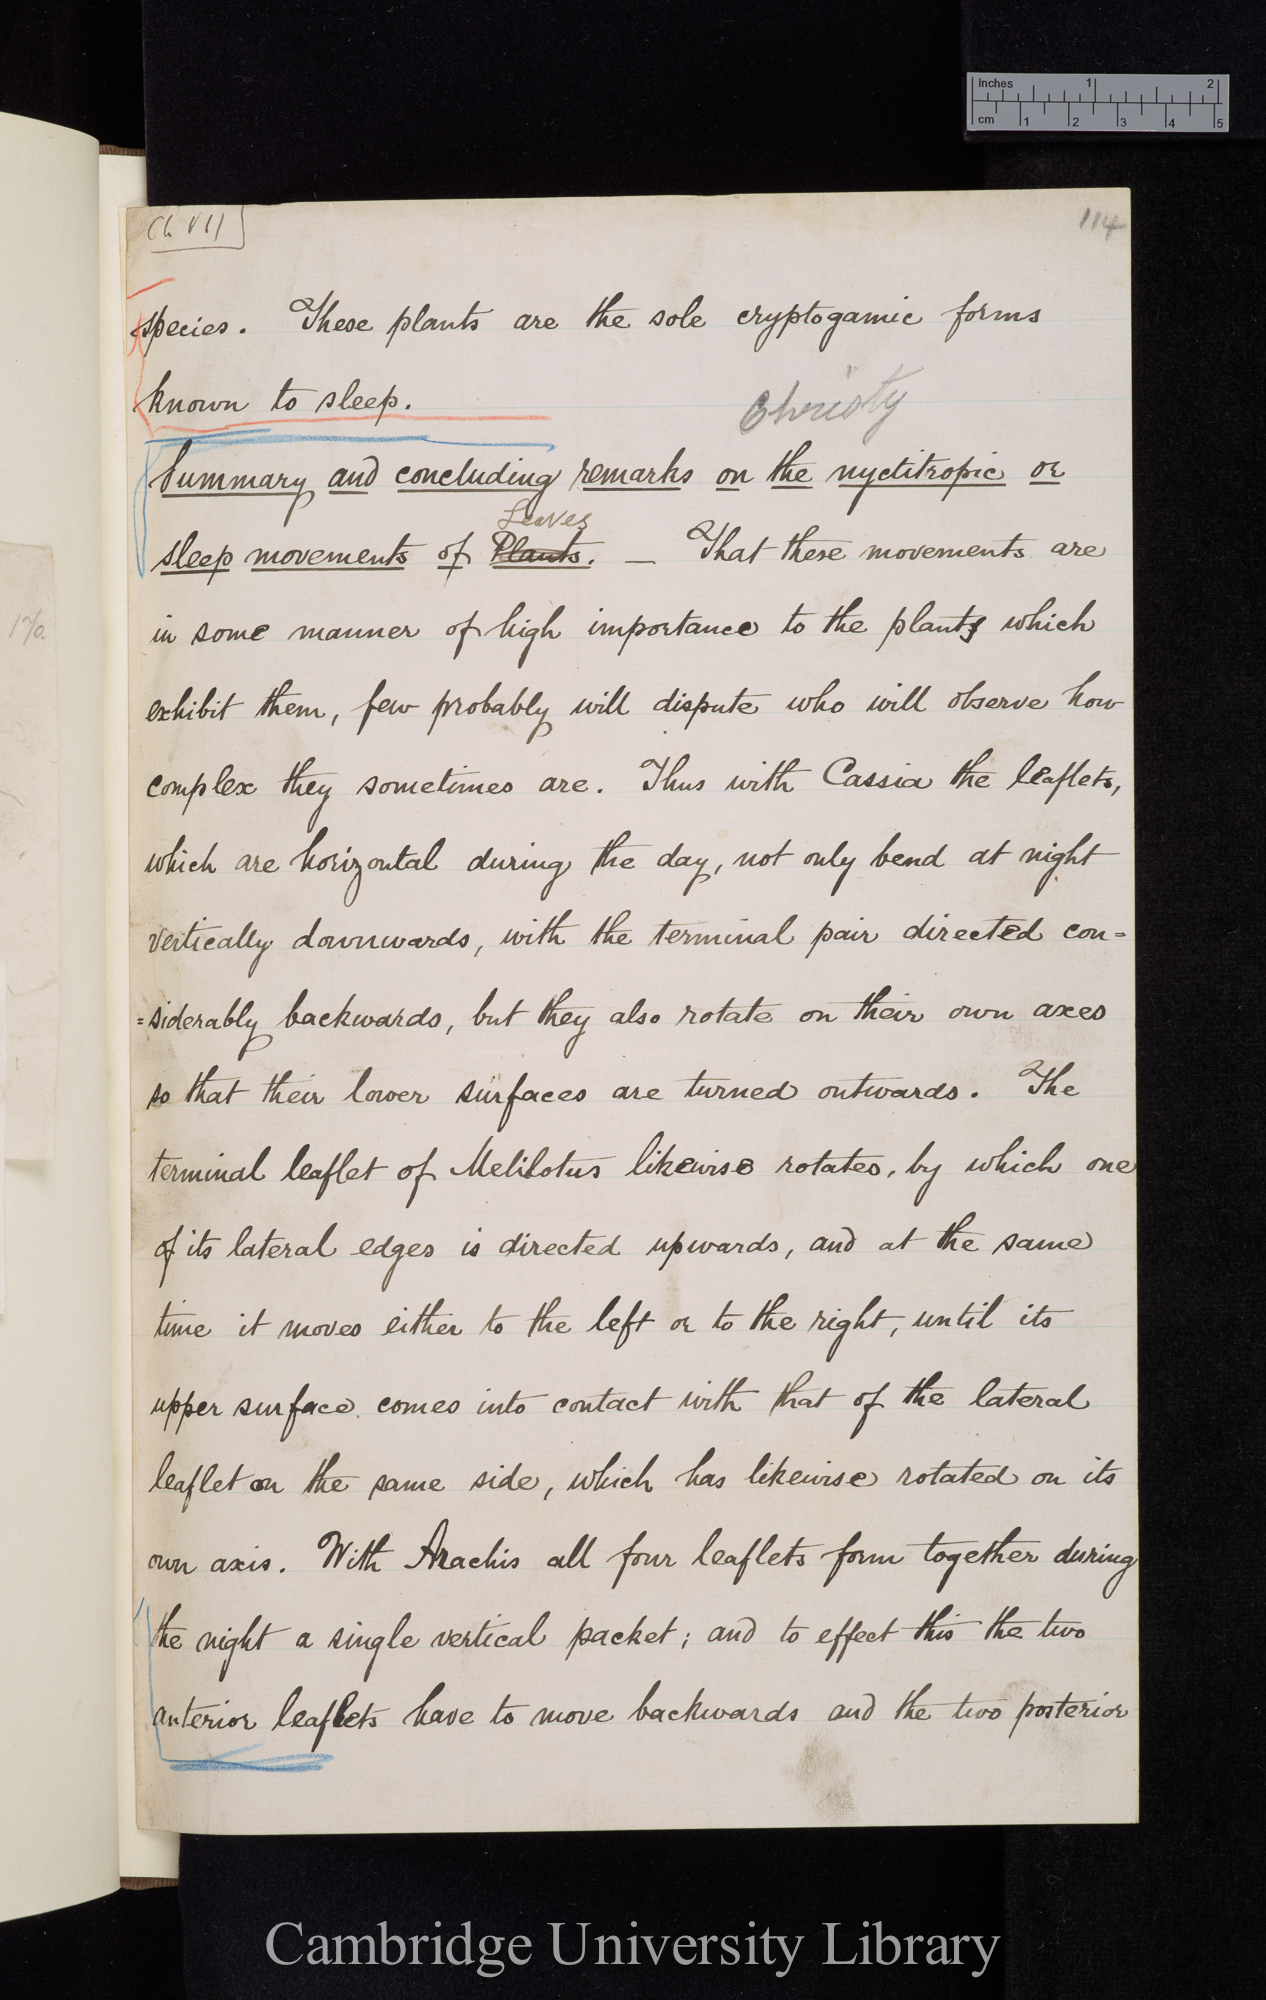 Inches 1 2
cm 1 2 3 4 5
Ch VII
114
species. These plants are the sole cryptogamic forms
known to sleep.
Christy
Summary and concluding remarks on the nyctitropic or
Leaves
sleep movements of Plants. — That these movements are
in some manner of high importance to the plants which
exhibit them, few probably will dispute who will observe how
complex they sometimes are. Thus with Cassia the leaflets,
which are horizontal during the day, not only bend at night
vertically downwards, with the terminal pair directed con=
=siderably backwards, but they also rotate on their own axes
so that their lower surfaces are turned outwards. The
terminal leaflet of Melilotus likewise rotates, by which one
of its lateral edges is directed upwards, and at the same
time it moves either to the left or to the right, until its
upper surface comes into contact with that of the lateral
leaflet on the same side, which has likewise rotated on its
own axis. With Arachis all four leaflets form together during
the night a single vertical packet; and to effect this the two
anterior leaflets have to move backwards and the two posterior
Cambridge University Library